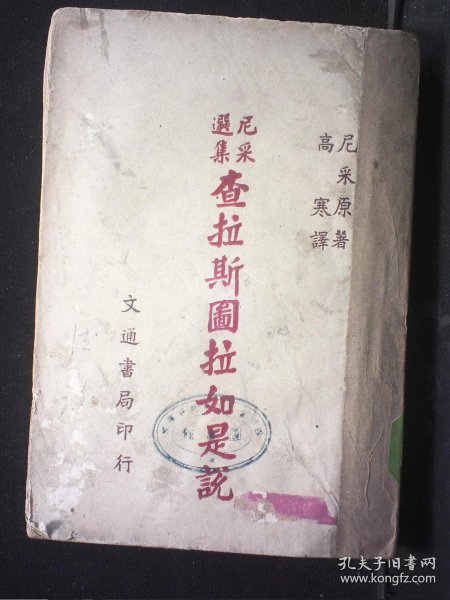 尼采原著
高寒譯
尼采
選集
查拉斯圖拉如是説
文通書局印行
孔夫子旧书网
www.kongfz.com